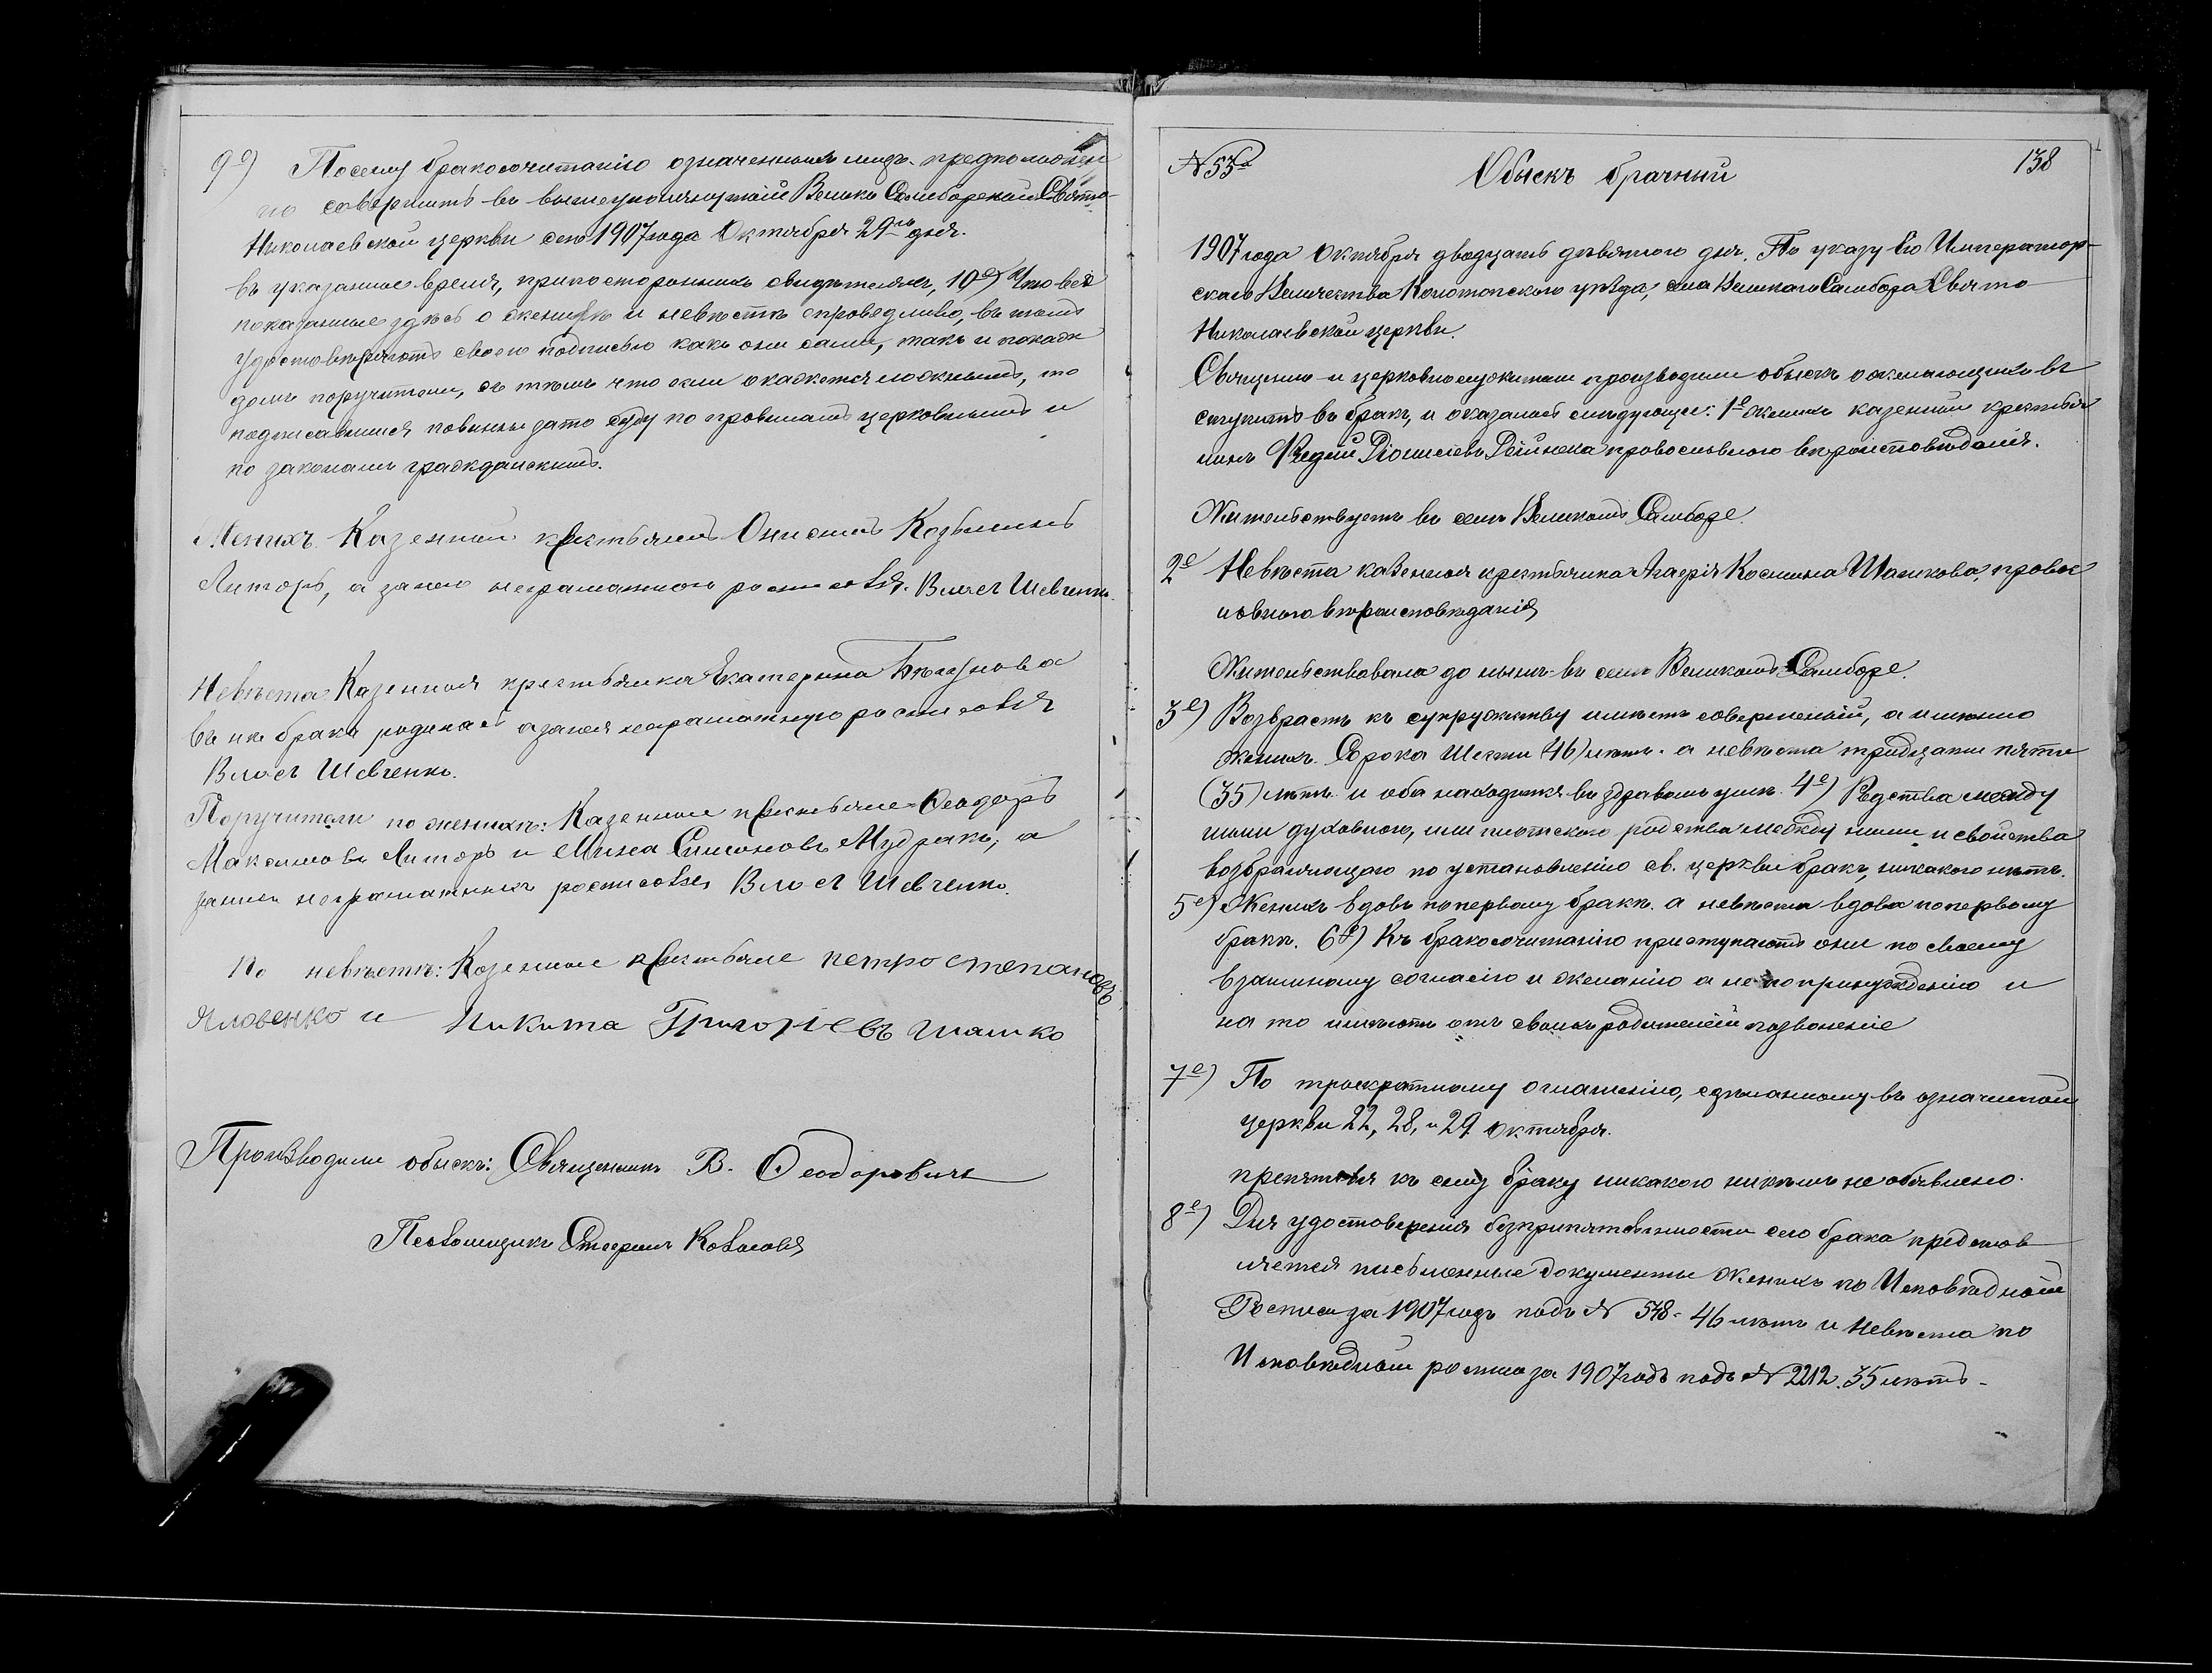 9е) Посему бракосочитанію означенныхъ лицъ предположен
но совершить въ вышеупомянутой Велико Самборской Свято-
Николаевской церкви сего 1907 года Октября 29го дня.
въ указанное время, при посторонныхъ свидѣтеляхъ, 10е) Что всѣ
показанное здѣсь о женихѣ и невѣстѣ справедливо, въ томъ
удостовѣряютъ своею подписью какъ они сами, такъ и
поручители, съ тѣмъ что если окажется ложнымъ, то
подписавшіися повинны за то суду по правиламъ церковнымъ и
по законамъ гражданскимъ.
Женихъ Казенный крестьянинъ Онисимъ Козьминъ
Литоръ, а за него неграмотного росписовся. Власъ Шевченко.
Невѣста Казенная крестьянка Екатерина Бѣгунова
въ не брака родинаъ а за нея неграмотную росписовся
Власъ Шевченко.
Поручители по женихѣ: Казенные крестьяне Феодоръ
Максимовъ Литоръ и Мина Симоновъ Мудракъ, а
за нихъ неграмотныхъ росписовся Власъ Шевченко.
По невѣстѣ: Козенные крестьяне петро степановъ
Яловенко и Никита Григоріевъ шашко
Производили обыскъ: Священникъ В. Феодоровичъ
Псаломщикъ
№ 53й Обыскъ брачный 138
1907 года Октября двадцать девятого дня. По указу Его Император-
скаго Величества Конотопского уѣзда, села Великаго Самбора Свято
Николаевской церкви.
Священно и церковнослужители производили обыскъ о желающихъ в
ступить въ бракъ, и оказалось слѣдующее: 1е женихъ казенный крестья
нинъ Федій Діонисіевъ Рѣйнека провославного вѣроисповѣданія.
Жительствуетъ въ селѣ Великомъ Самборе.
2е Невѣста казенная крестьянка Агафія Космина Шашкова, провос
лавного вѣроисповѣданія
Жительствовала до нынѣ въ селѣ Великомъ Самборе.
3е) Возврастъ къ супружеству имѣютъ соверменый, а именно
женихъ Сорока Шести 46) лѣтъ а невѣста тридцати пяти
(35) лѣтъ и оба находятся въ здравомъ умѣ. 4е) Родства между
ними духовного, или плотского родства между ними и свойства
возбраняющаго по установленію св. церкви бракъ, никакого нѣтъ.
5е) Женихъ вдовъ по первому браку. а невѣста вдова по первому
браку. 6е) Къ бракосочитанію приступаютъ они по своему
взаимному согласію и желанію а не по принуждению и
на то имѣютъ отъ своихъ родителей позволеніе
7е) По троекратному оглашенію, сдѣланному въ означенной
церкви 22, 28, и 29 Октября.
препятствія къ сему браку никакого никѣмъ не объявлено.
8е) Для удостоверения безприпятственности сего брака предстов
ляется письменные документы Женихъ по Исповѣдной
Росписи за 1907 годъ подъ № 548 - 46 лѣтъ и Невѣста по
Исповѣдной росписи за 1907 годъ подъ № 2212. 35 лѣтъ -